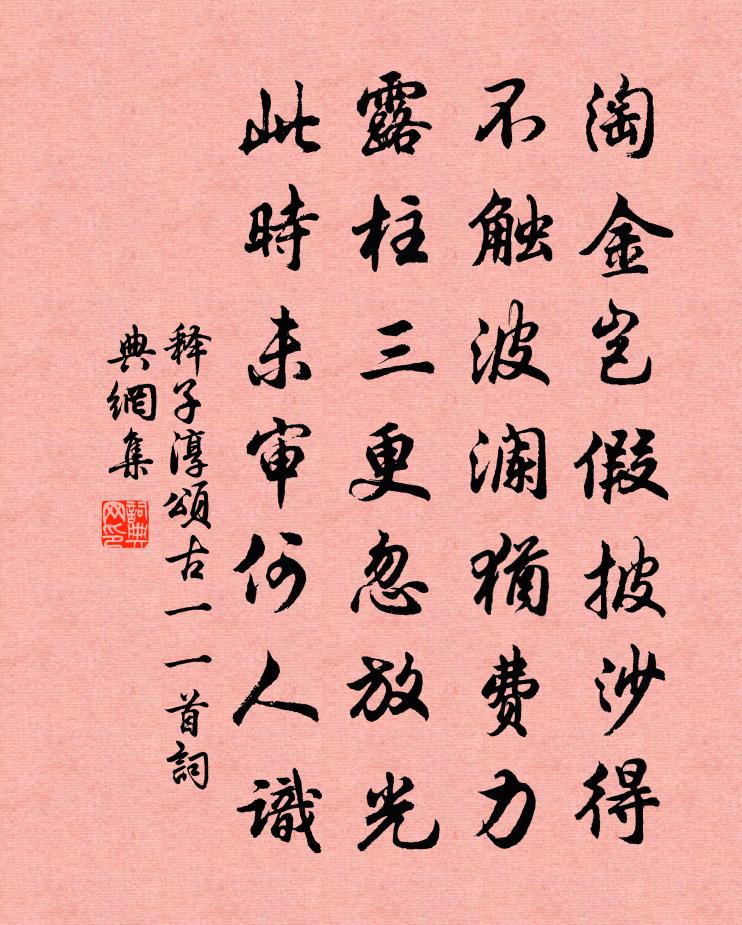 淘金岂假披沙得
不触波澜犹费力
露柱三更忽放光
此時未审何人識
释子淳頌古一一首詞
典網集
詞典网印